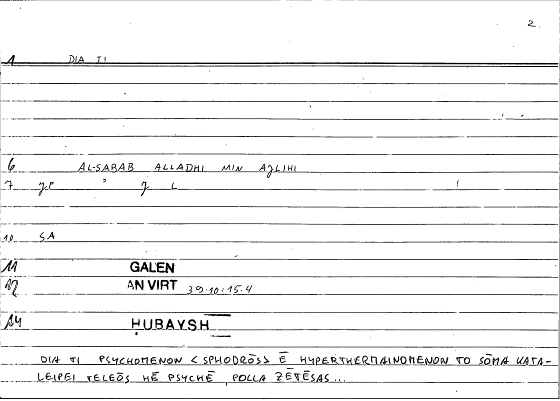 2.
1 DIA TI
6 AL-SABAB ALLADHI MIN AJLIHI
7
10 SA
11 GALEN
12 AN VIRT 39.10:15.4
14 HUBAYSH
DIA TI PSYCHOMENON < SPHODRŌS> Ē HYPERTHERMAINOMENON TO SŌMA KATA-
LEIPEI TELEŌS HĒ PSYCHĒ, POLLA ZĒTĒSAS...